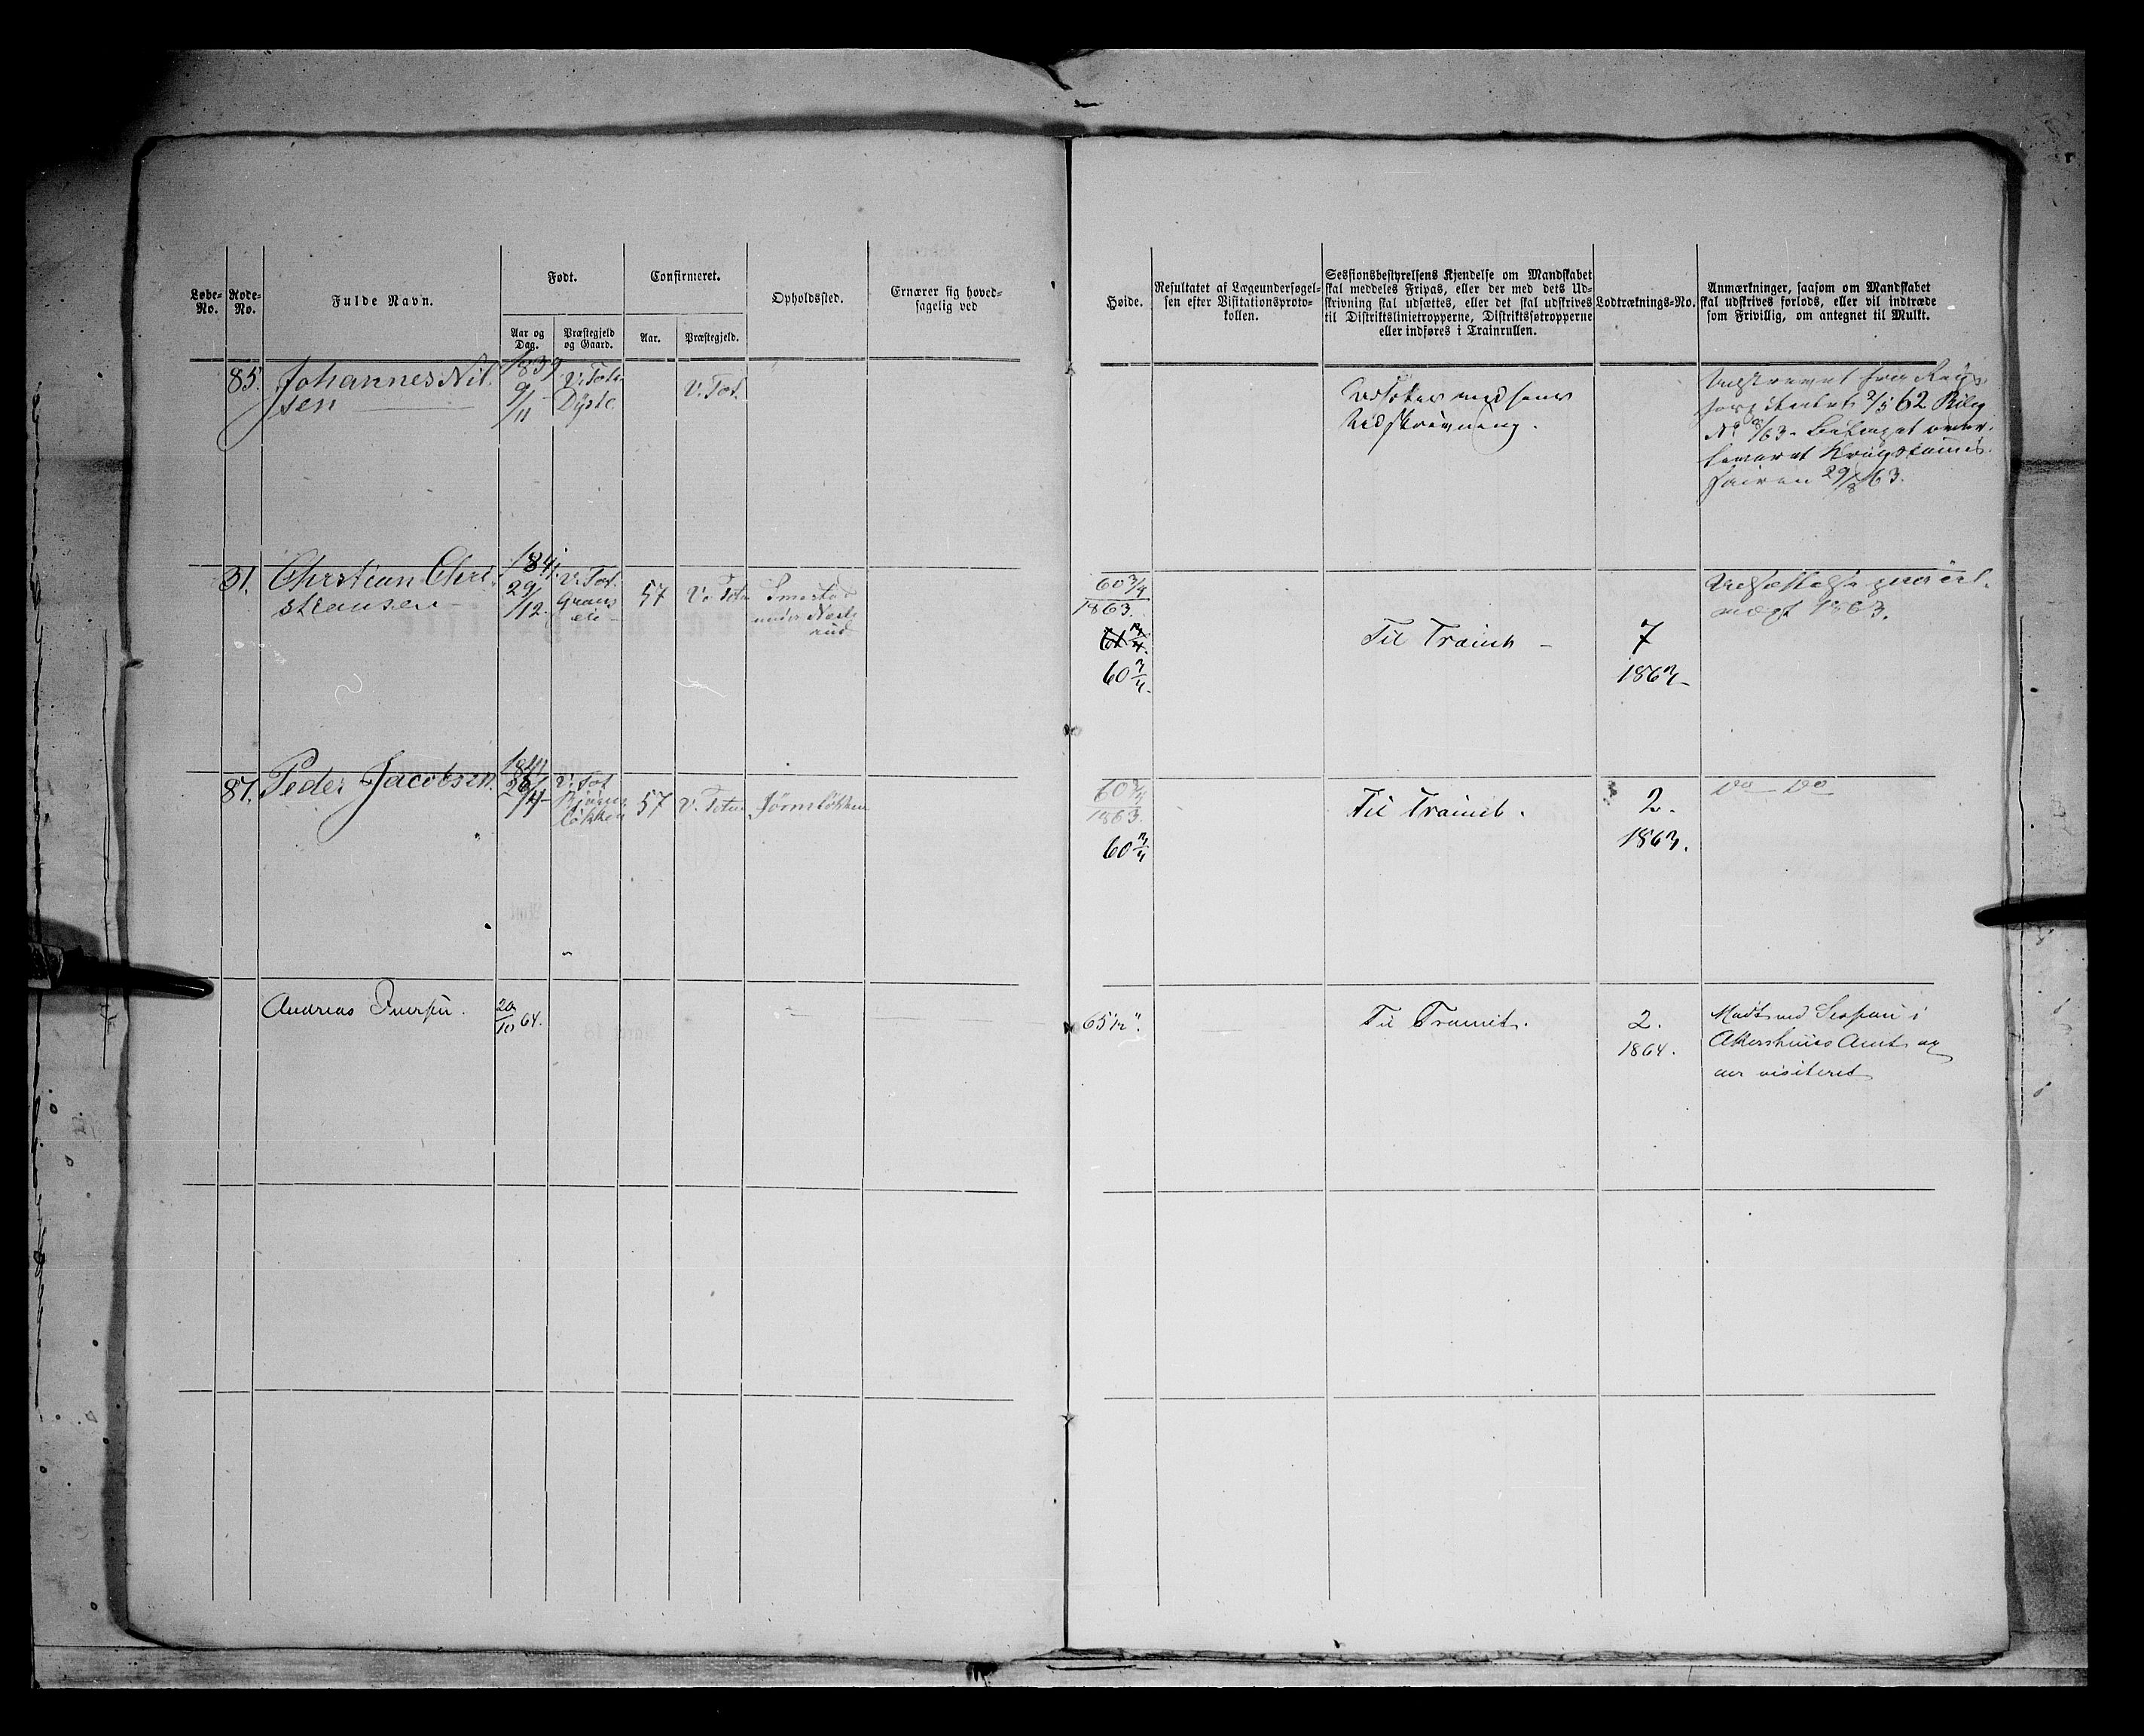 Løbe-No.
Rode-No.
Fulde Navn.
Født.
Aar og Dag.
Præstegjeld og Gaard.
Confirmeret.
Aar.
Præstegjeld.
Opholdssted.
Ernærer sig hoved-
sagelig ved
Høide.
Resultatet af Lægeundersøgel-
sen efter Visitationsproto-
kollen.
Sessionsbestyrelsens Kjendelse om Mandskabet
skal meddeles Fripas, eller der med dets Ud-
skrivning skal udsættes, eller det skal udskrives
til Distriktslinietropperne, Distriktssøtropperne
eller indføres i Trainrullen.
Lodtræknings-No.
Anmærkninger, saasom om Mandskabet
skal udskrives forlods, eller vil indtræde
som Frivillig, om antegnet til Mulkt.
85.
Johannes Nil-
sen
1839
9/11
V. Toten
Dyste
V. Tot.
Udskrivning.
2/5 62
No 8/63
29/8 63.
31.
Christian Chri-
stiansen
184
29/12
V. Tot.
57
V. Toten
Smestad
under
60 3/4
1863.
60 3/4
Til Trainet
7
1863
1863.
87.
Peder Jacobsen.
V. Tot
57
V. Toten
60 3/4
1863.
60 3/4
Til Trainet.
2.
1863.
Do Do
Andreas Iversen.
20/10 64.
65 1/2".
Til Trainet.
2.
1864.
Mødt ved Session i
Akershuus Amt og
der visiteret